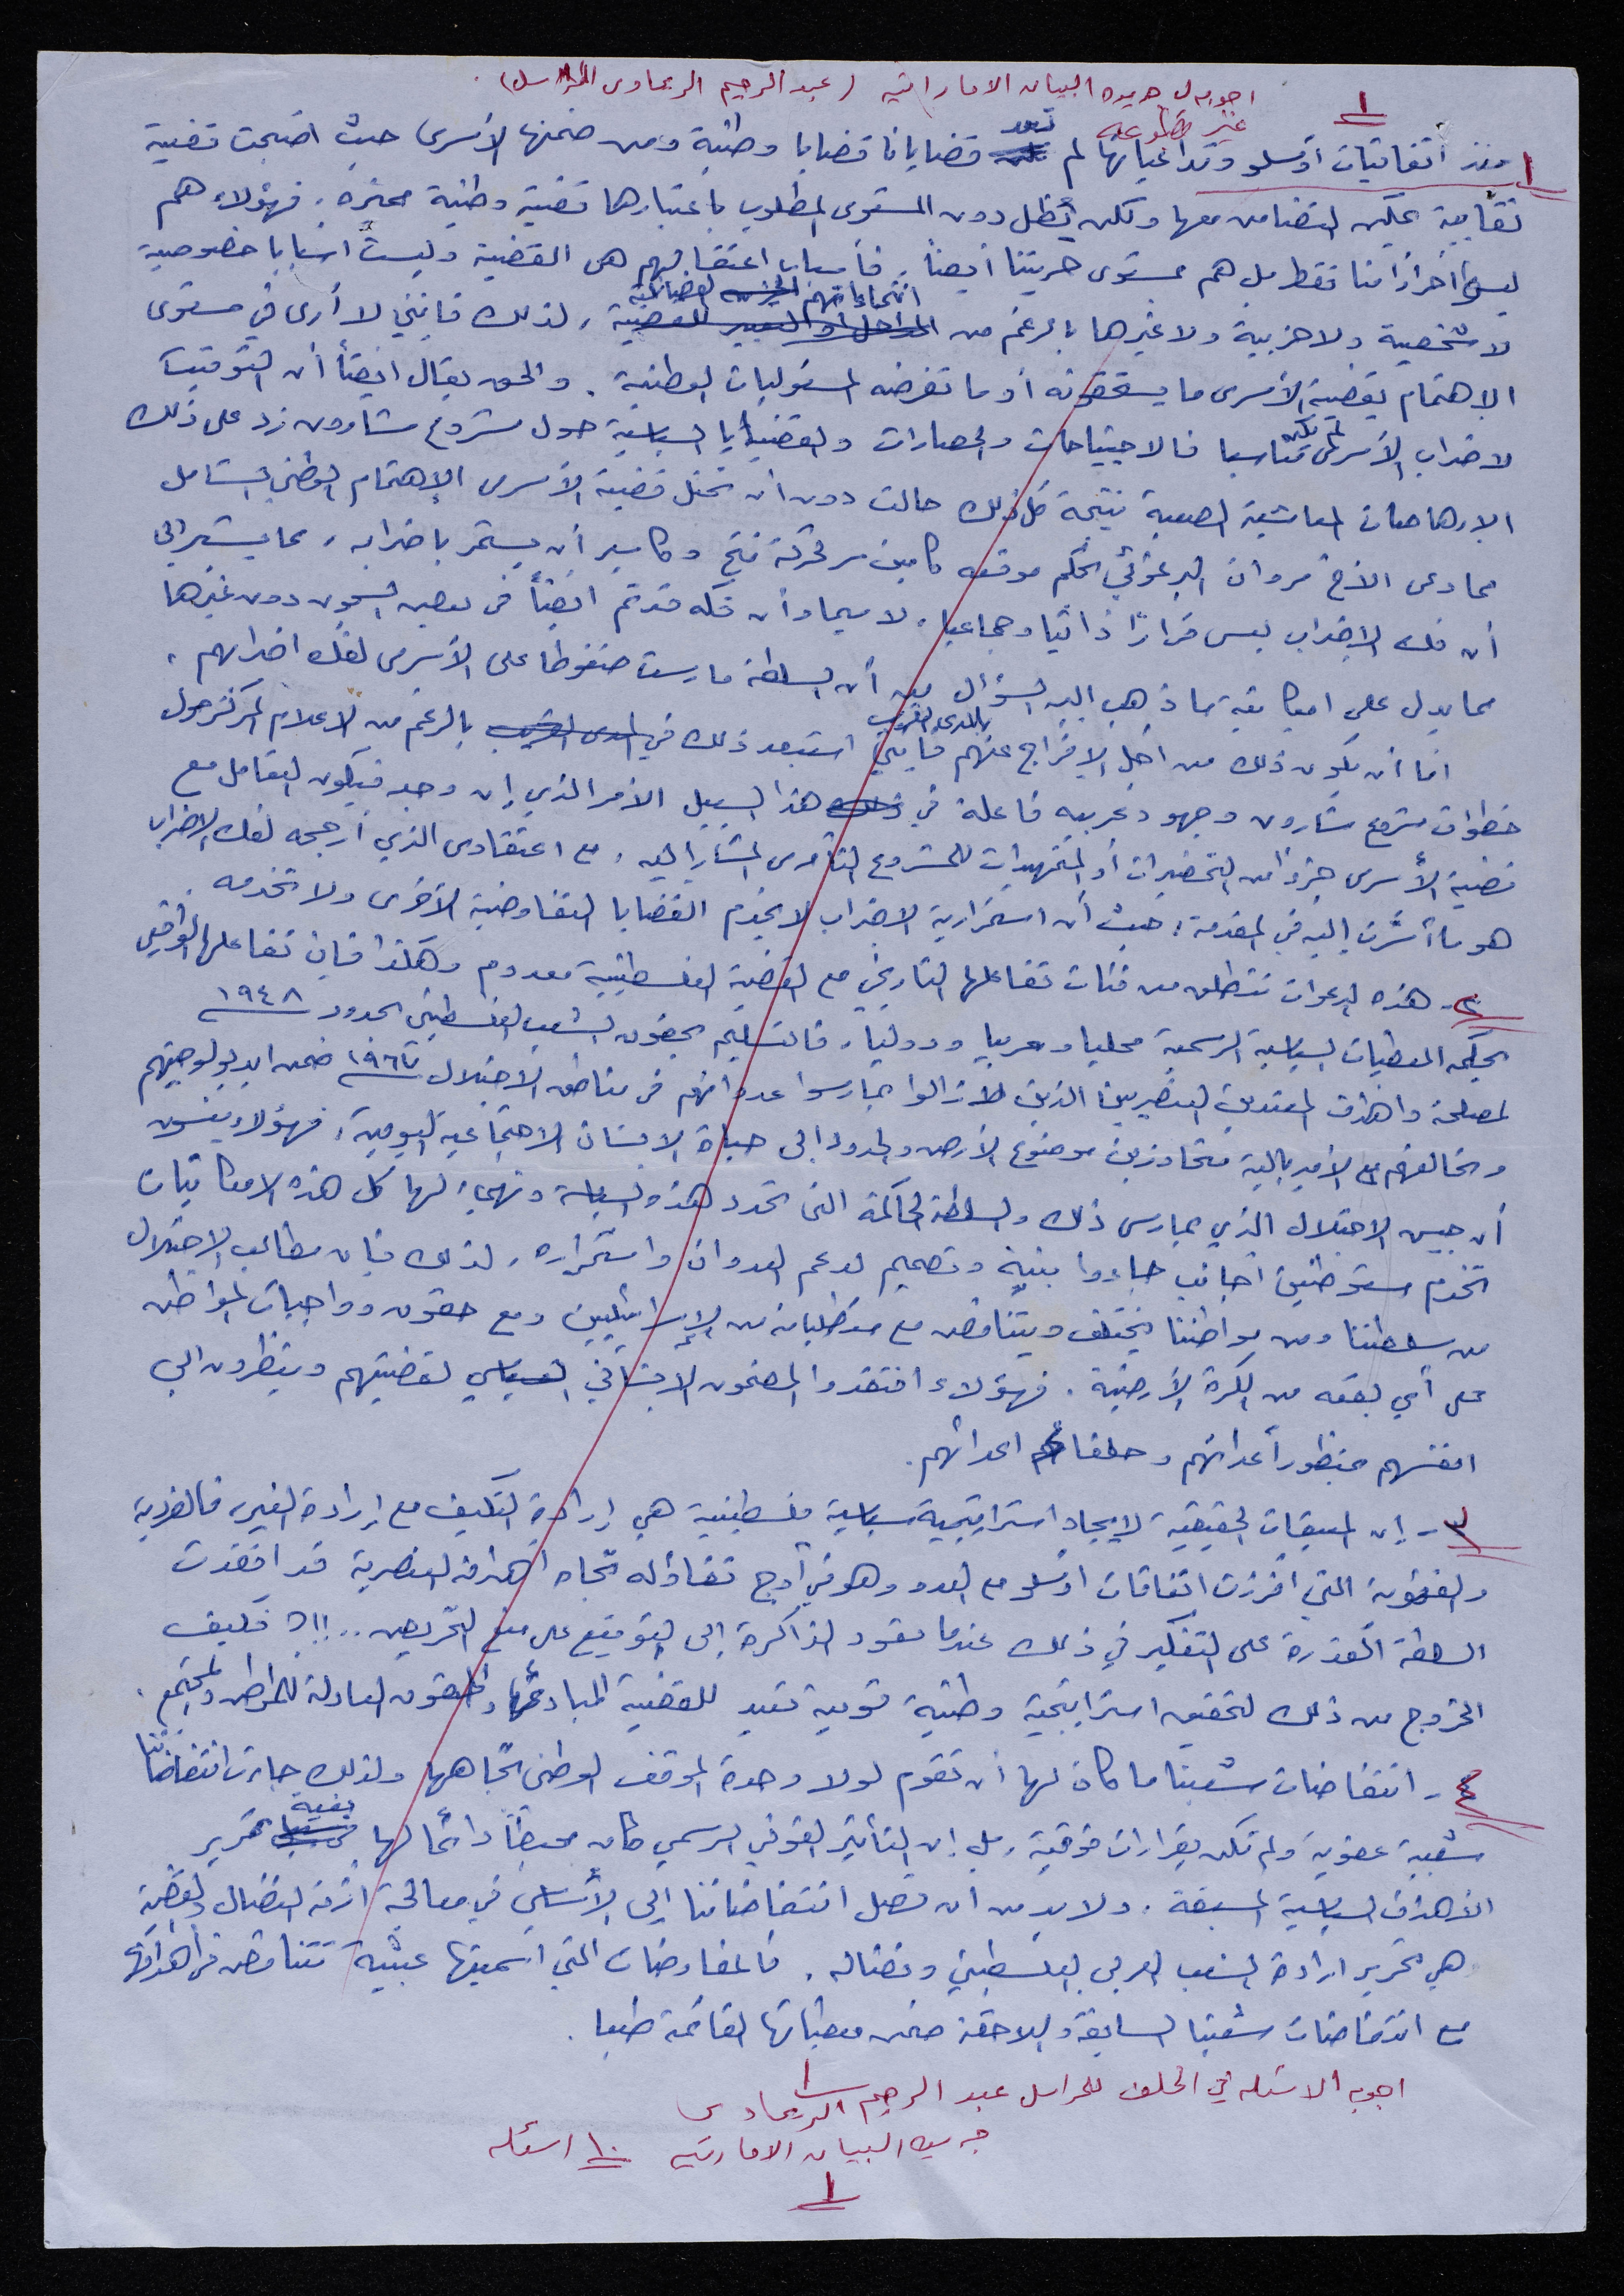 اجوبه ل جريده البيان الاماراتيه (عبد الرحيم الريماوى المراسل).
١
غير مطبوعه
١- منذ اتفاقيات أوسلو وتداعياتها لم تعد قضايانا قضايا وطنية ومن ضمنها الأسرى حيث اضحت قضية
نقابية يمكن التضامن معها ولكن تظل دون المستوى المطلوب باعتبارها قضية وطنية مميزه. فهؤلاء هم
ليسوا أحرارنا فقط بل هم مستوى حريتنا أيضاً. فأسباب اعتقالهم هى القضية وليست اسبابا خصوصية
لا شخصية ولا حزبية ولا غيرها بالرغم من انتماءاتهم الفصائلية، لذلك فإنني لا أرى في مستوى
الاهتمام بقضية الأسرى ما يستحقونه أو ما تفرضه المسئوليات الوطنية. والحق يقال ايضاً أن التوقيت
لاضراب الأسرى لم يكن مناسبا فالاجتياحات والحصارات والقضايا السياسية حول مشروع شارون زد على ذلك
الارهاصات المعاشية الصعبة نتيجة كل ذلك حالت دون أن تحتل قضية الأسرى الاهتمام الوطني الشامل
مما دعى الاخ مروان البرغوثي بحكم موقعه كأمين سر لحركة فتح وكأسير أن يستمر باضرابه، مما يشير الى
أن فك الاضراب ليس قرارًا ذاتيا وجماعيا، لا سيما وأن فكه قد تم ايضاً في بعض السجون دون غيرها
مما يدل على امكانية ما ذهب اليه السؤال من أن السلطة مارست ضغوطا على الأسرى لفك اضرابهم.
اما أن يكون ذلك من أجل الافراج عنهم فإني استبعد ذلك بالمدى القريب بالرغم من الاعلام المركز حول
خطوات مشروع شارون وجهود عربيه فاعلة في هذا السبيل الأمر الذي إن وجد فيكون التعامل مع
قضية الأسرى جزءاً من التحضيرات أو التمهيدات للمشروع التآمرى المشار اليه، مع اعتقادى الذي أرجحه لفك الاضراب
هو ما أشرت إليه في المقدمة: حيث أن استمرارية الاضراب لا يخدم القضايا التفاوضية الأخرى ولا تخدمه.
٢- هذه الدعوات تنطلق من فئات تفاعلها التاريخي مع القضية الفلسطينية معدوم وهكذا فإن تفاعلها الواقعي
بحكم المعطيات السياسية الرسمية محليا وعربيا ودوليا، فالتسليم بحقوق الشعب الفلسطيني لحدود ١٩٤٨
لمصلحة واهداف المعتدين العنصريين الذين لا زالوا يمارسوا عدوانهم في مناطق الاحتلال ١٩٦٧ ضمن ايديولوجيتهم
وتحالفهم مع الامبريالية متجاوزين موضوع الأرض والحدود إلى حياة الانسان الاجتماعيه اليومية، فهؤلاء ينسون
أن جيش الاحتلال الذي يمارس ذلك والسلطة الحاكمة التى تحدد هذه السياسة وتهيئ لها كل هذه الامكانيات
تخدم مستوطنين اجانب جاءوا بنية وتصميم لدعم العدوان واستمراره، لذلك فإن مطالب الاحتلال
من سلطتنا ومن مواطننا يختلف ويتناقض مع متطلباته من الإسرائيليين ومع حقوق وواجبات المواطن
على أي بقعه من الكرة الأرضية. فهؤلاء افتقدوا المضمون الانساني السياسي لقضيتهم وينظرون الى
انفسهم بمنظور أعدائهم وحلفاء اعدائهم.
٣- إن المعيقات الحقيقية لايجاد استراتيجية سياسية فلسطينية هي إرادة التكيف مع إرادة الغير، فالفردية
والفئوية التي افرزت اتفاقات اوسلو مع العدو وهو في أوج تفاؤله تجاه أهدافه العنصرية قد افقدت
السلطة القدرة على التفكير في ذلك عندما تعود الذاكرة إلى التوقيع على منع التحريض..!! فكيف
الخروج من ذلك لتحقيق استراتيجية وطنية قومية تعيد للقضية المبادئ والحقوق العادلة للمواطن والمجتمع.
٤- انتفاضات شعبنا ما كان لها أن تقوم لولا وحدة الموقف الوطني تجاهها ولذلك جاءت انتفاضاتنا
شعبية عفوية ولم تكن بقرارات فوقية، بل إن التأثير الفوقي الرسمي كان محبطاً دائما لها بغية تمرير
الأهداف السياسية المسبقة. ولا بد من أن تصل انتفاضاتنا إلى الأساس في معالجة أزمة النضال والقضية
هي تحرير ارادة الشعب العربي الفلسطيني ونضاله. فالمفاوضات التي اسميتها عبثية تتناقض في أهدافها
مع انتفاضات شعبنا السابقة واللاحقة ضمن معطياتها القائمة طبعا.
اجوبه الاسئله في الخلف للمراسل عبد الرحيم الريماوى
جريده البيان الاماراتيه ١٠ اسئله
١